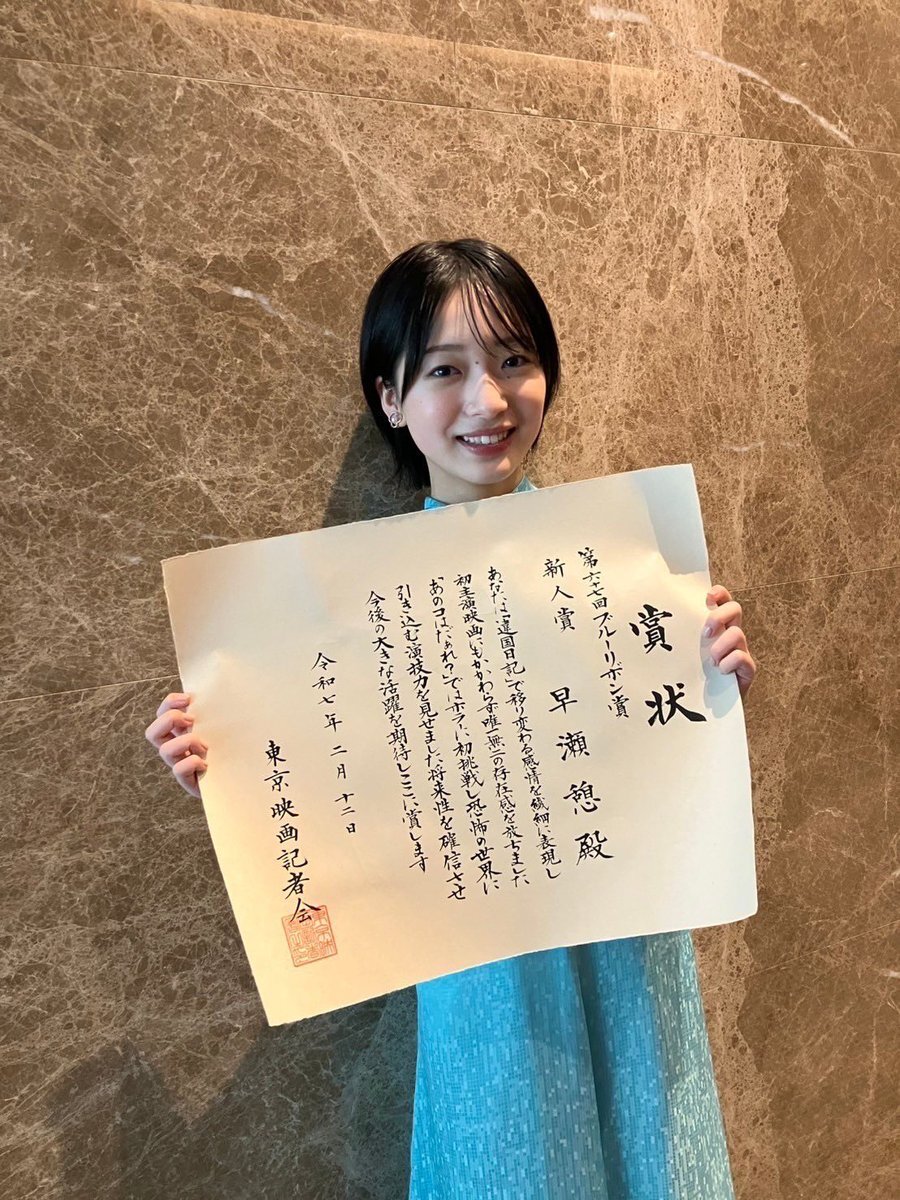 賞状
第六十七回ブルーリボン賞
新人賞　早瀬憩殿
あなたは「違国日記」で移り変わる感情を繊細に表現し
初主演映画にもかかわらず唯一無二の存在感を放ちました
「あのコはだぁれ？」ではホラーに初挑戦し恐怖の世界に
引き込む演技力を見せました将来性を確信させ
今後の大きな活躍を期待しここに賞します
令和七年二月十二日
東京映画記者会